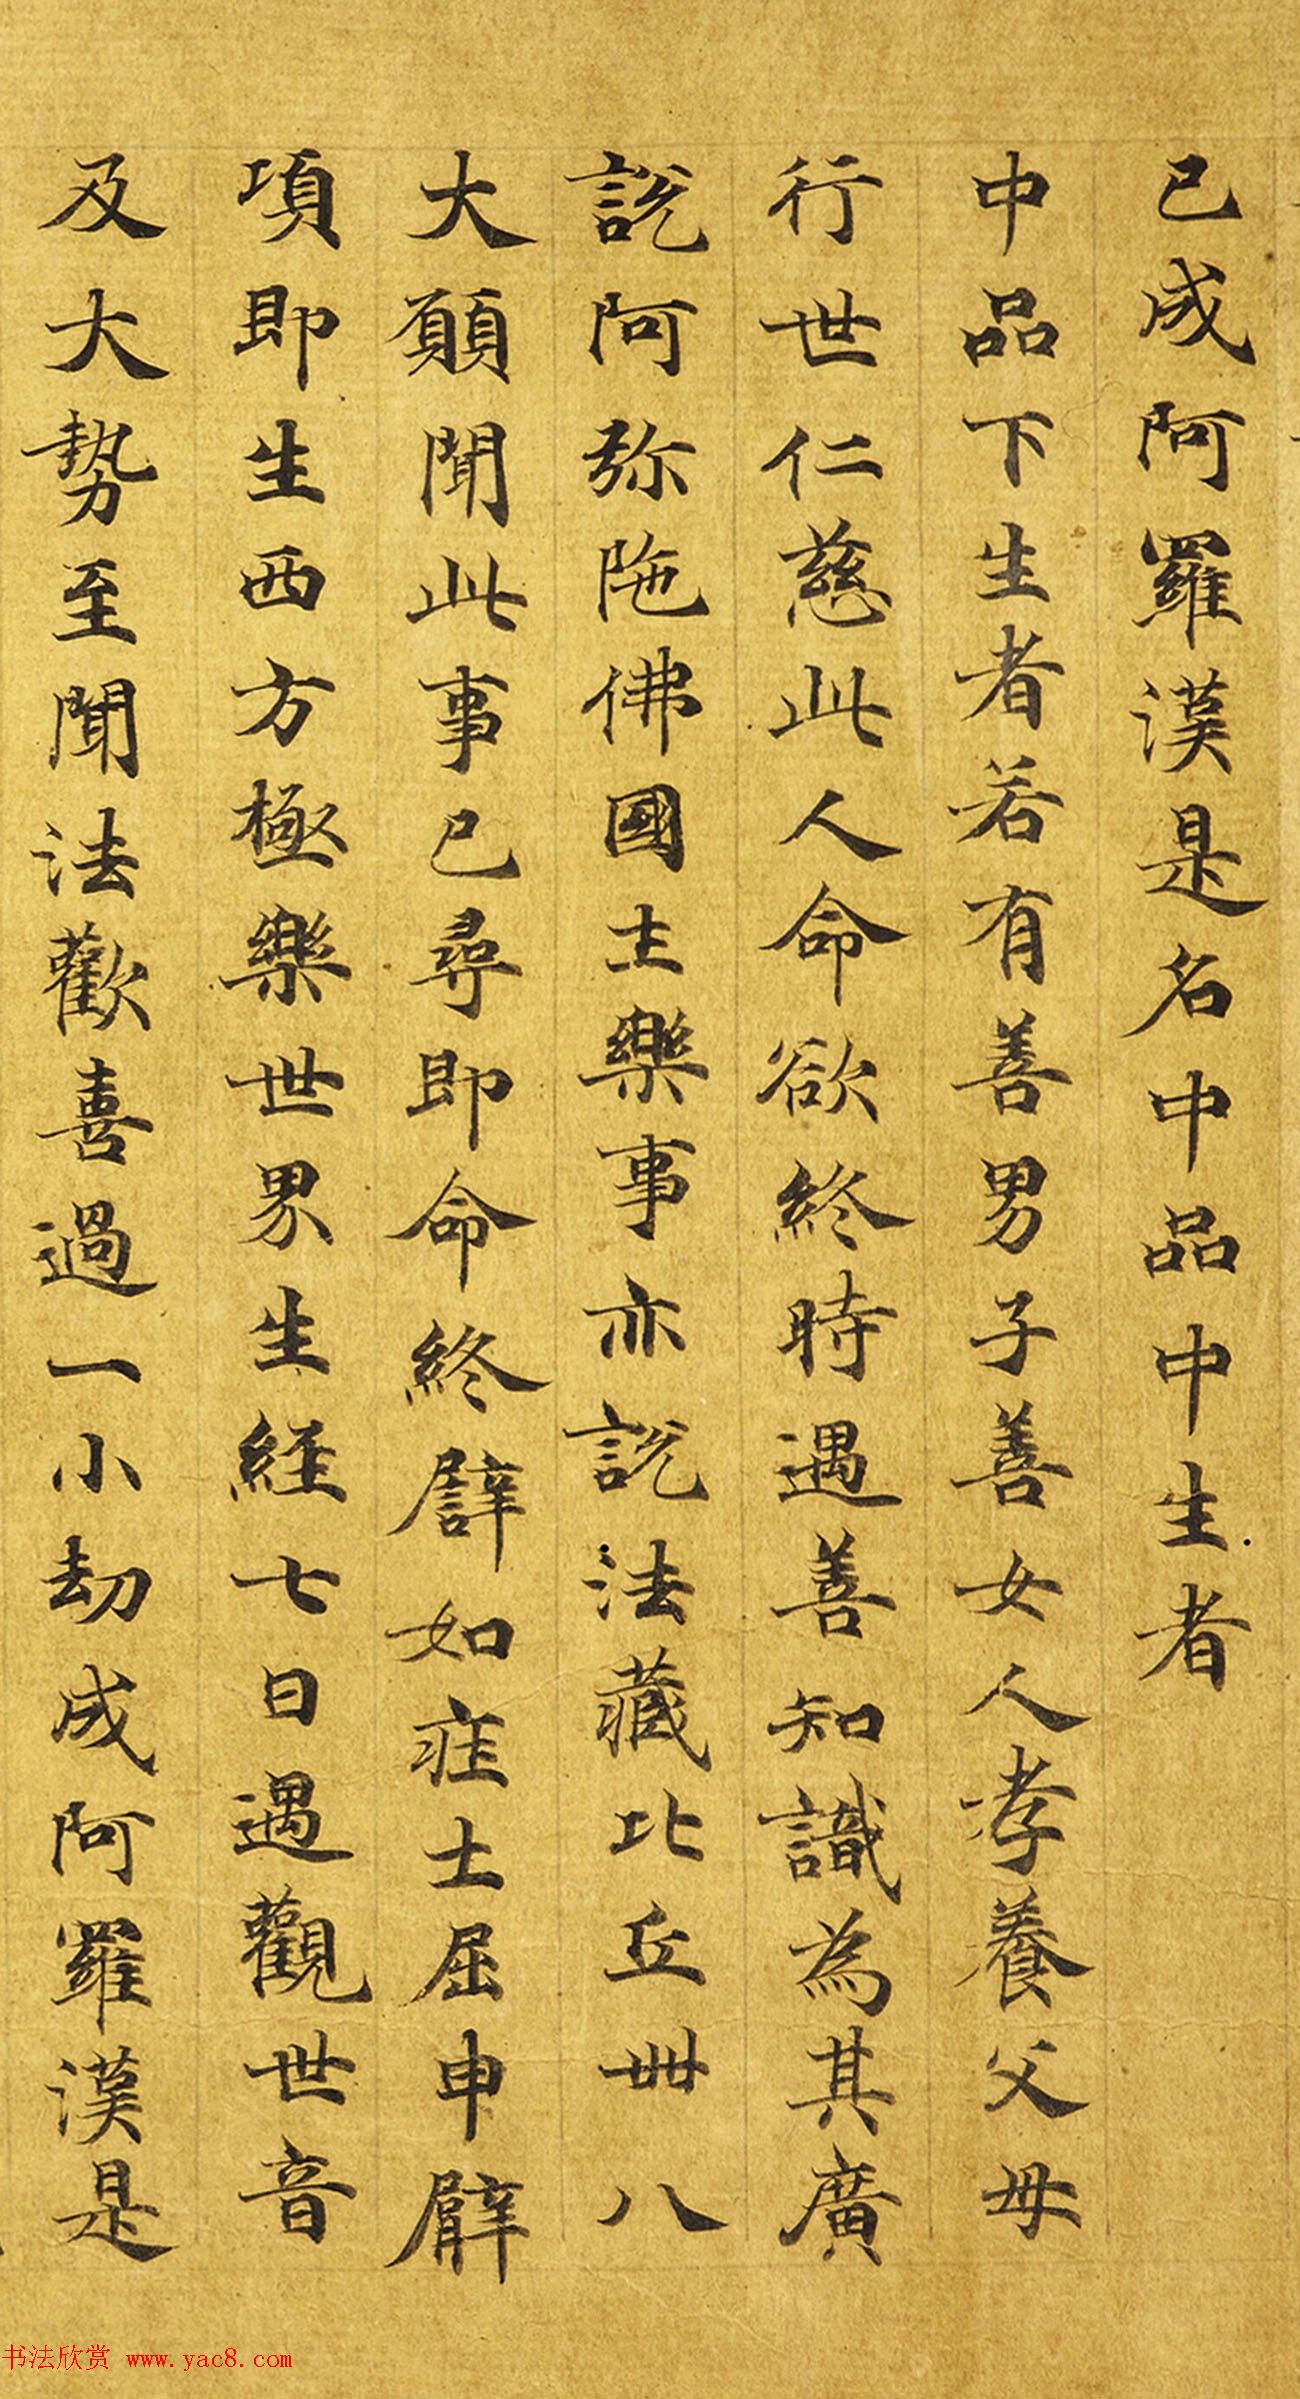 已成阿羅漢是名中品中生者
中品下生者若有善男子善女人孝養父母
行世仁慈此人命欲終時遇善知識為其廣
說阿弥陁佛國土樂事亦說法藏比丘卌八
大願聞此事已尋即命終譬如壮士屈申臂
項即生西方極樂世界生経七日遇觀世音
及大勢至聞法歡喜過一小劫成阿羅漢是
书法欣赏 www.yac8.com